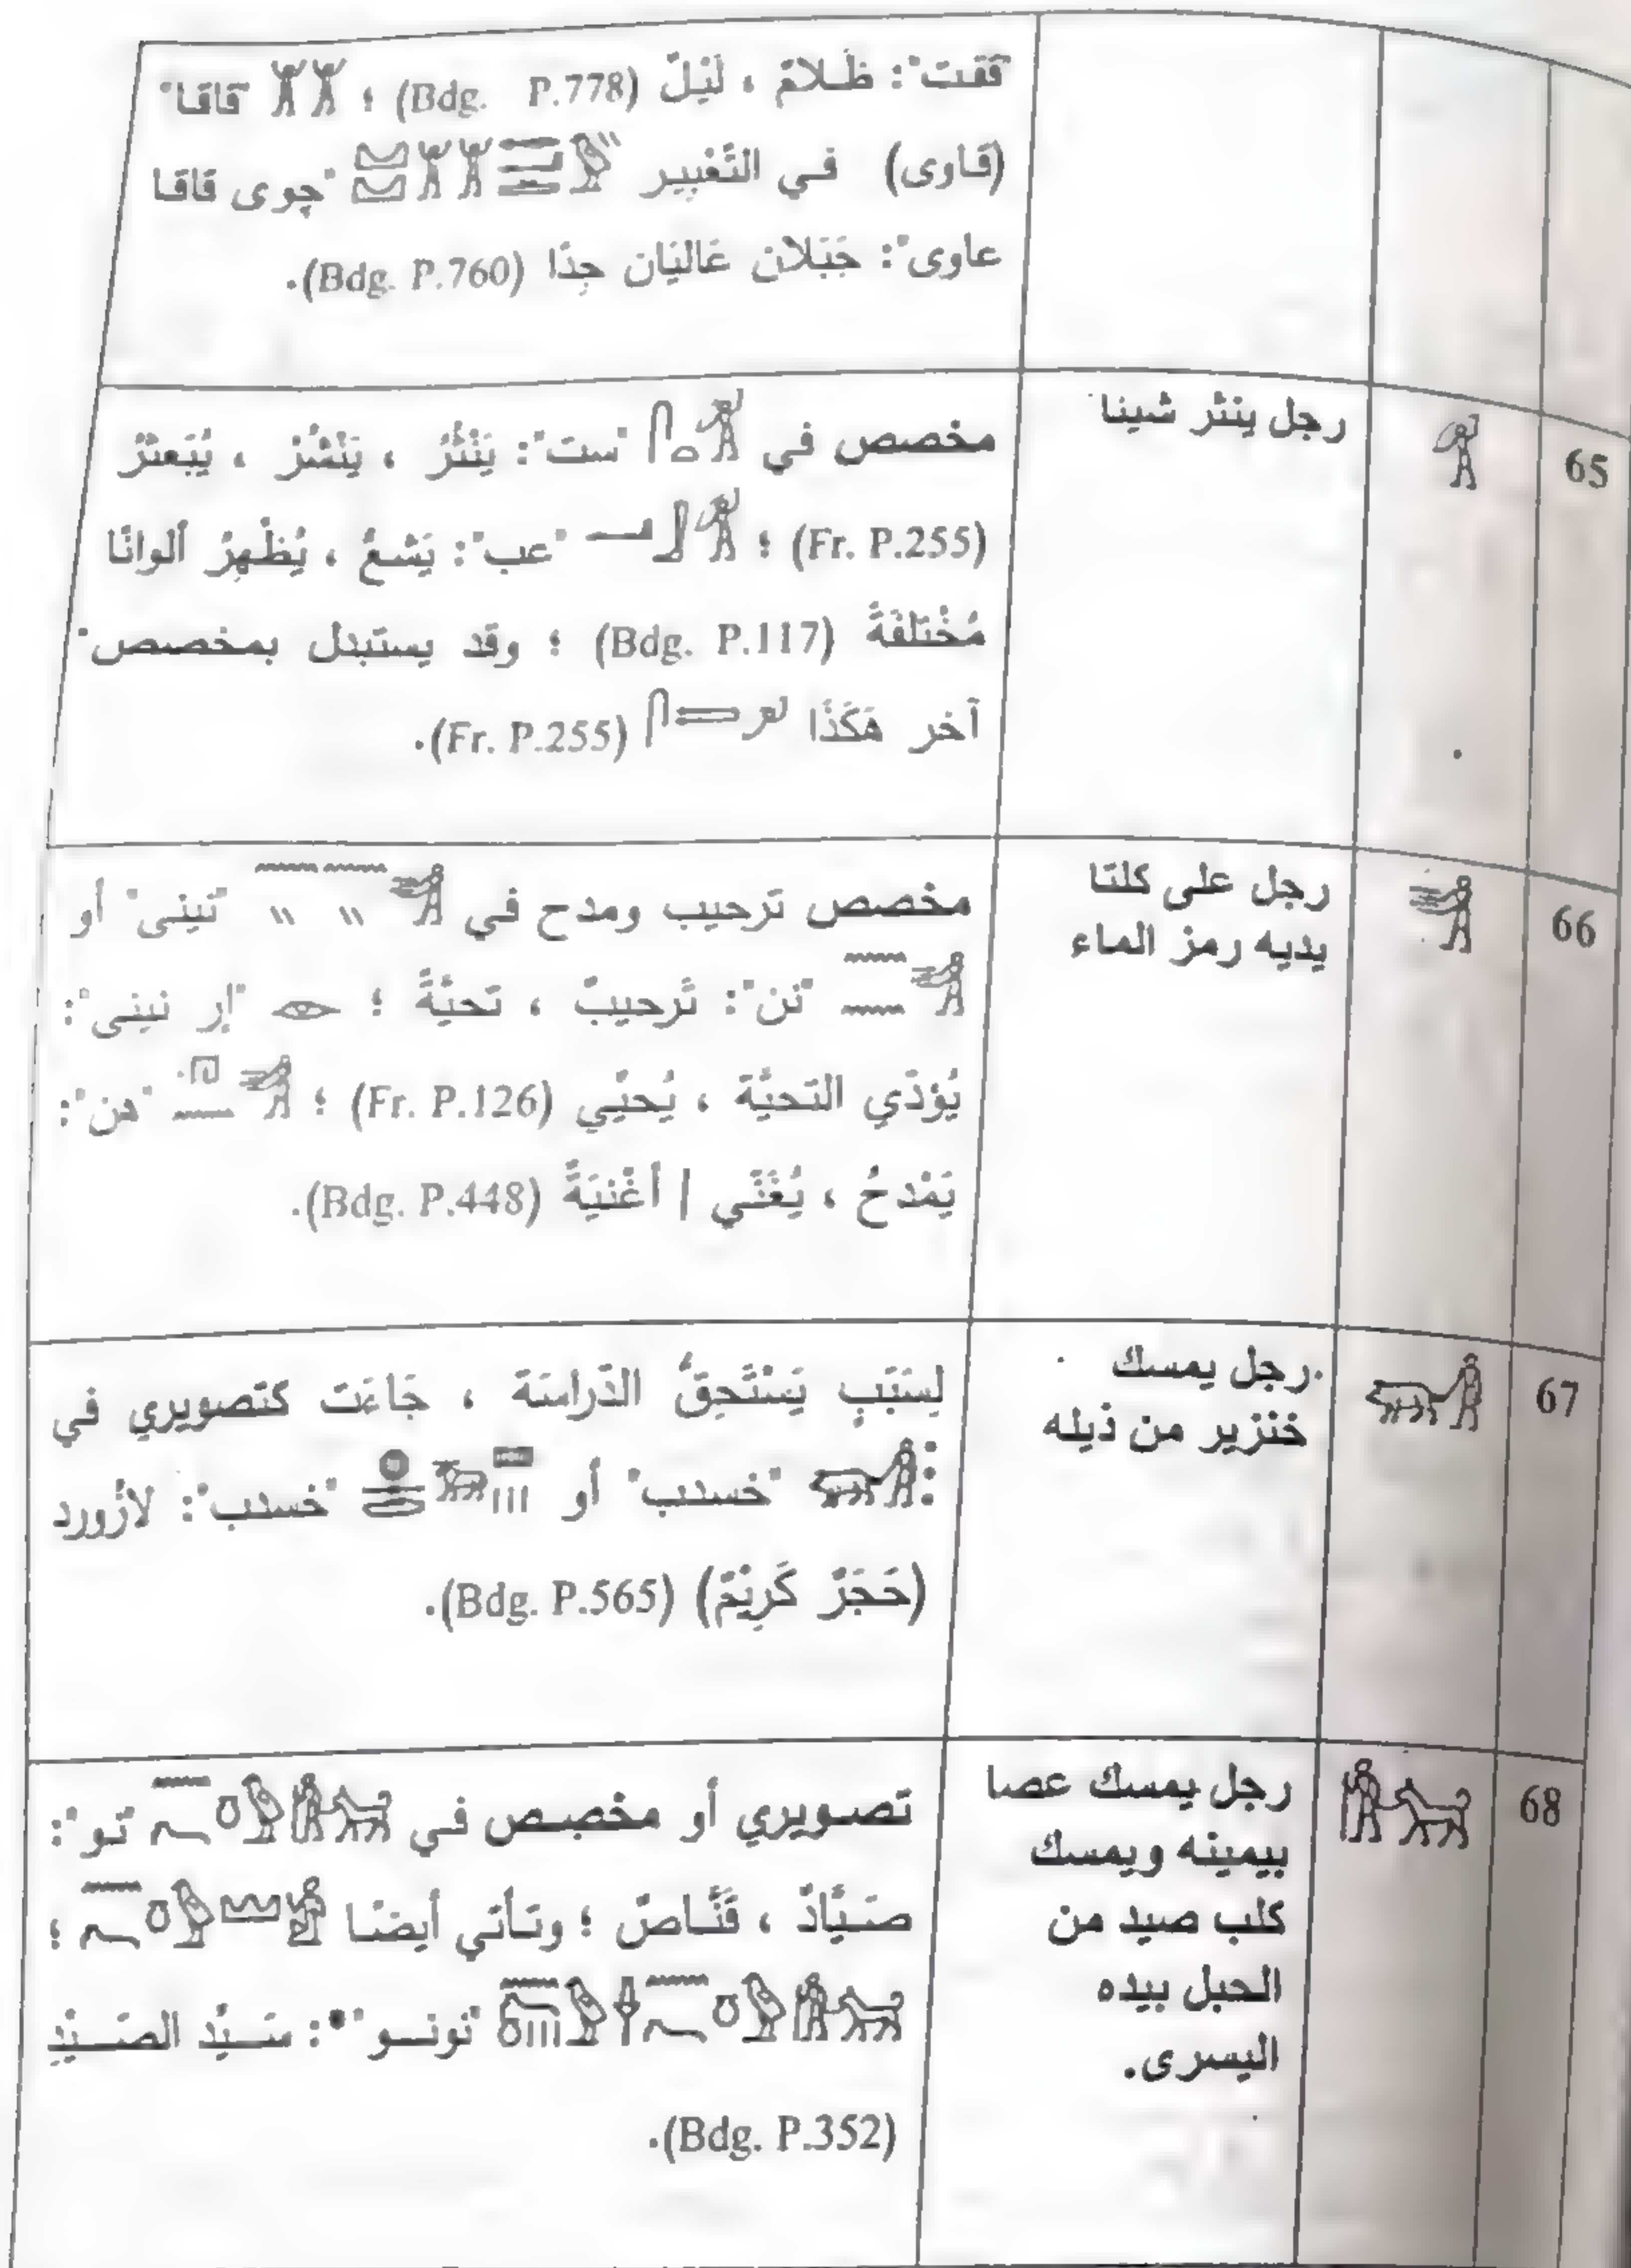 "ققت": ظلامٌ ، لَيْلٌ (Bdg. P.778) ؛ "قاقا"
(قاوى) في التَّعْبِير "چوى قاقا
عاوى": جَبَلان عَاليَان جِدًا (Bdg. P.760).
65
رجل ينثر شيئا
مخصص في "ست": يَنْثُرُ ، يَنْشُرُ ، يُبَعثرُ
(Fr. P.255) ؛ "عب": يَشعُ ، يُظْهِرُ ألوانًا
مُخْتلفَةً (Bdg. P.117) ؛ وقد يستبدل بمخصص
آخر هَكَذَا (Fr. P.255).
66
رجل على كلتا
يديه رمز الماء
مخصص ترحيب ومدح في "نينى" أو
"نن": تَرحيبٌ ، تحيَّةً ؛ "إر نينى":
يُؤدّي التحيَّة ، يُحيِّي (Fr. P.126) ؛ "هن":
يَمْدحُ ، يُغَنَّي | أغْنيَةً (Bdg. P.448).
67
رجل يمسك
خنزير من ذيله
لِسَبَبٍ يَسْتَحِقُّ الدّراسَة ، جَاءَت كتصويري في
"خسدب" أو "خسدب": لازُورد
(حَجَرٌ كَرِيْمٌ) (Bdg. P.565).
68
رجل يمسك عصا
بيمينه ويمسك
كلب صيد من
الحبل بيده
اليسرى.
تصويري أو مخصص في "نو":
صَيَّادٌ ، قَنَّاصٌ ؛ وتأتي أيضًا ؛
"نونسو": سَيِّد الصَيْدِ
(Bdg. P.352).